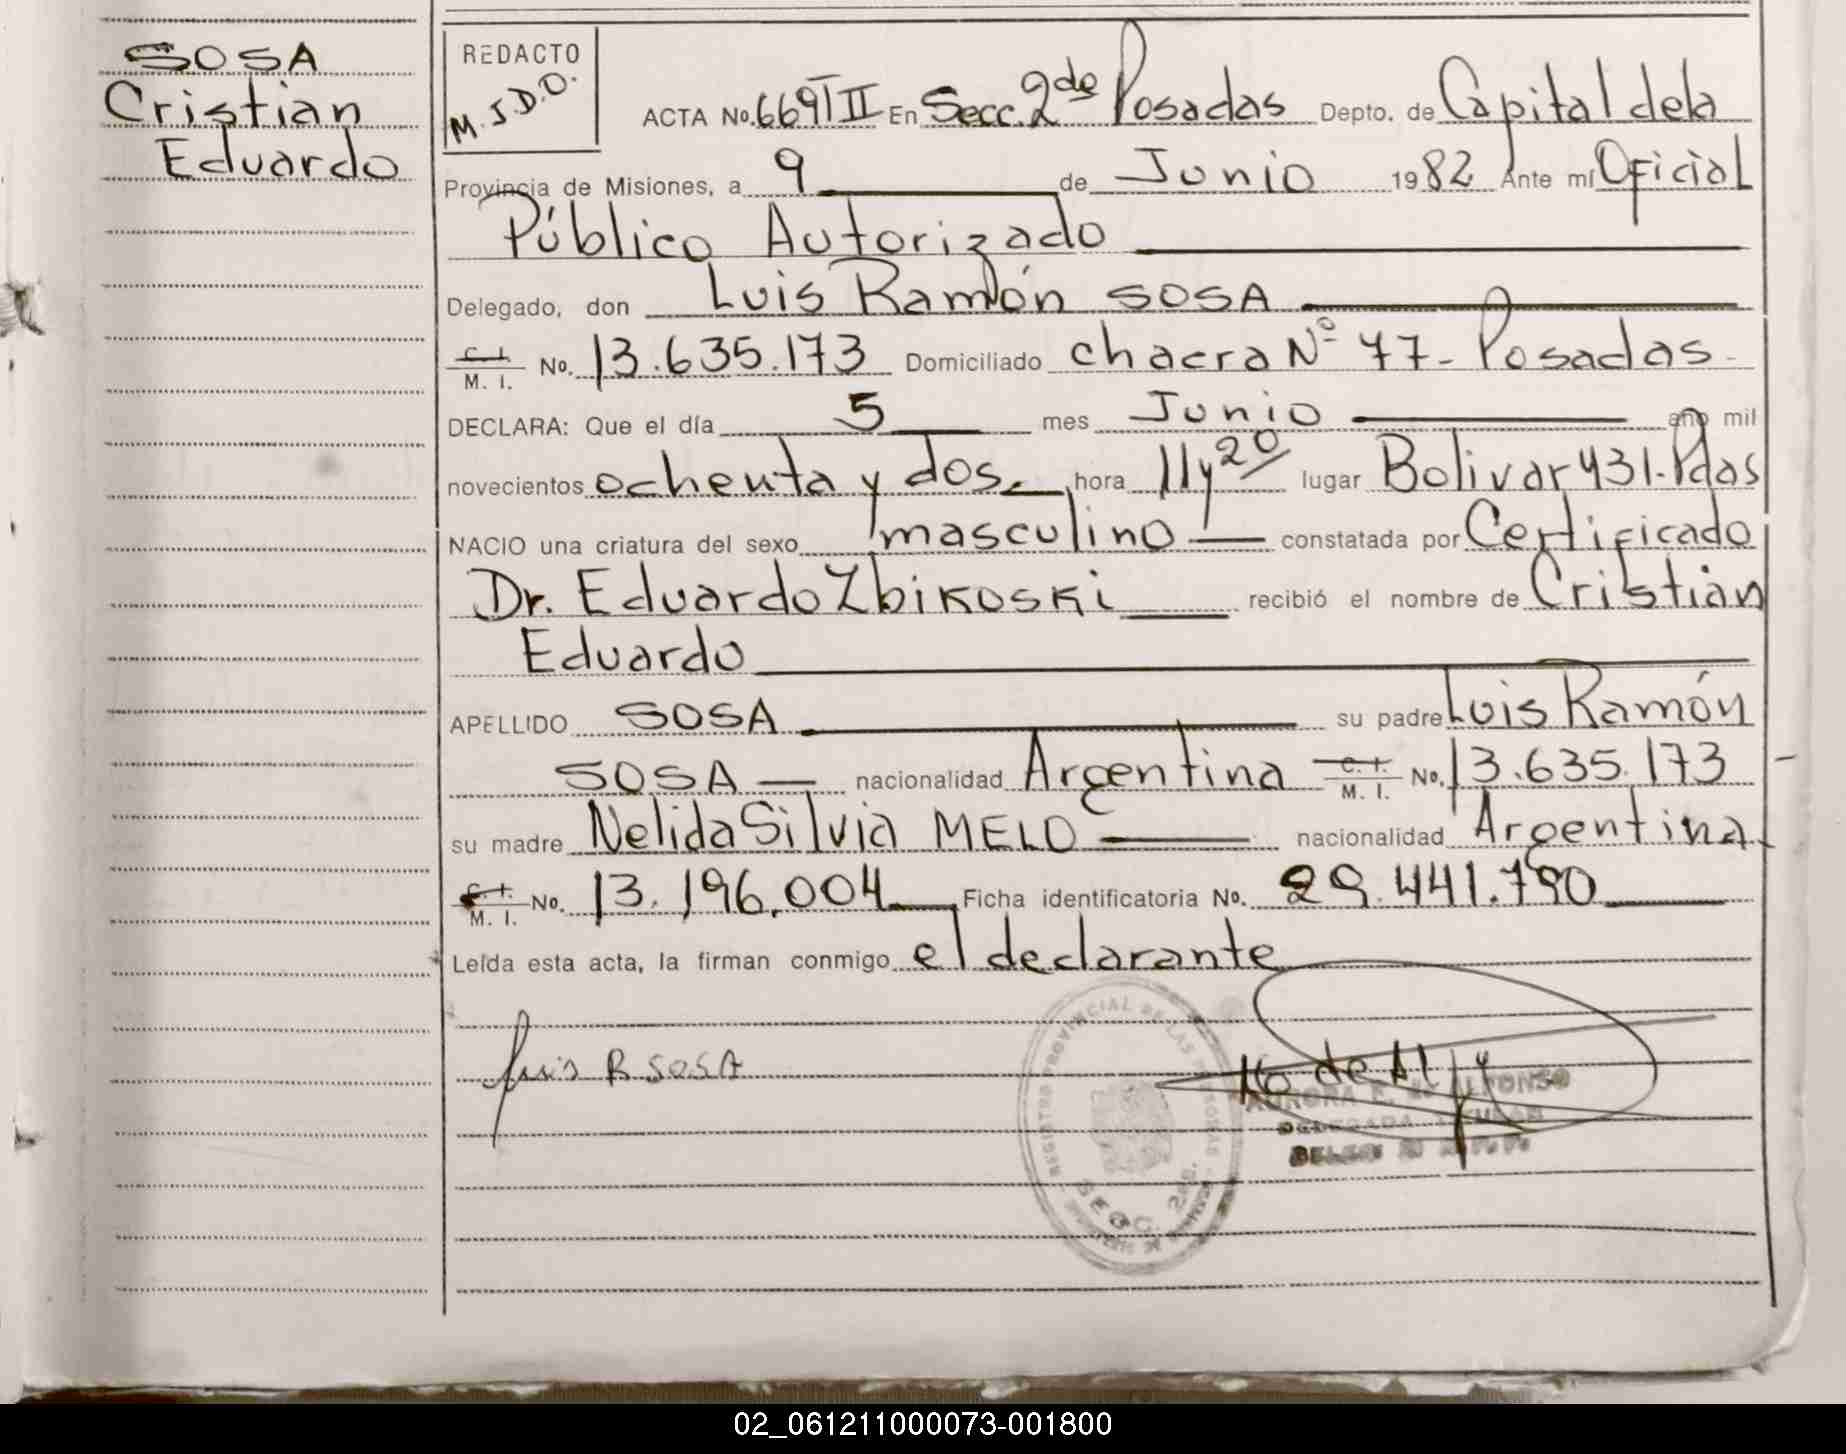 SOSA
Cristian
Eduardo
REDACTO
M.J.D.O.
ACTA No. 669 T II En Secc. 2da Posadas Depto. de Capital de la
Provincia de Misiones, a 9 de Junio 1982 Ante mí Oficial
Público Autorizado
Delegado, don Luis Ramón SOSA
C. I.
M. I. No. 13.635.173 Domiciliado chacra Nº 77- Posadas-
DECLARA: Que el día 5 mes Junio año mil
novecientos ochenta y dos hora 11 y 20 lugar Bolivar 431-Pdas
NACIO una criatura del sexo masculino constatada por Certificado
Dr. Eduardo Zbikoski recibió el nombre de Cristian
Eduardo
APELLIDO SOSA su padre Luis Ramón
SOSA nacionalidad Argentina C. I. M. I. No. 13.635.173 -
su madre Nelida Silvia MELO nacionalidad Argentina
C. I. M. I. No. 13.196.004 Ficha identificatoria No. 29.441.790
Leída esta acta, la firman conmigo el declarante
Luis R SOSA
REGISTRO PROVINCIAL DE LAS PERSONAS
SECC. 2da.
AURORA E. de ALFONSO
DELEGADA TITULAR
02_061211000073-001800